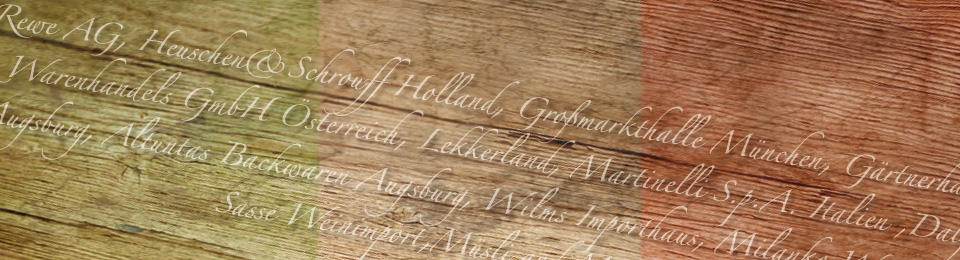 Rewe AG, Heuschen&Schrouff Holland, Großmarkthalle München,
Warenhandels GmbH Österreich, Lekkerland, Martinelli S.p.A. Italien ,
Augsburg, Altuntas Backwaren Augsburg, Wilms Importhaus,
Sasse Weinimport,